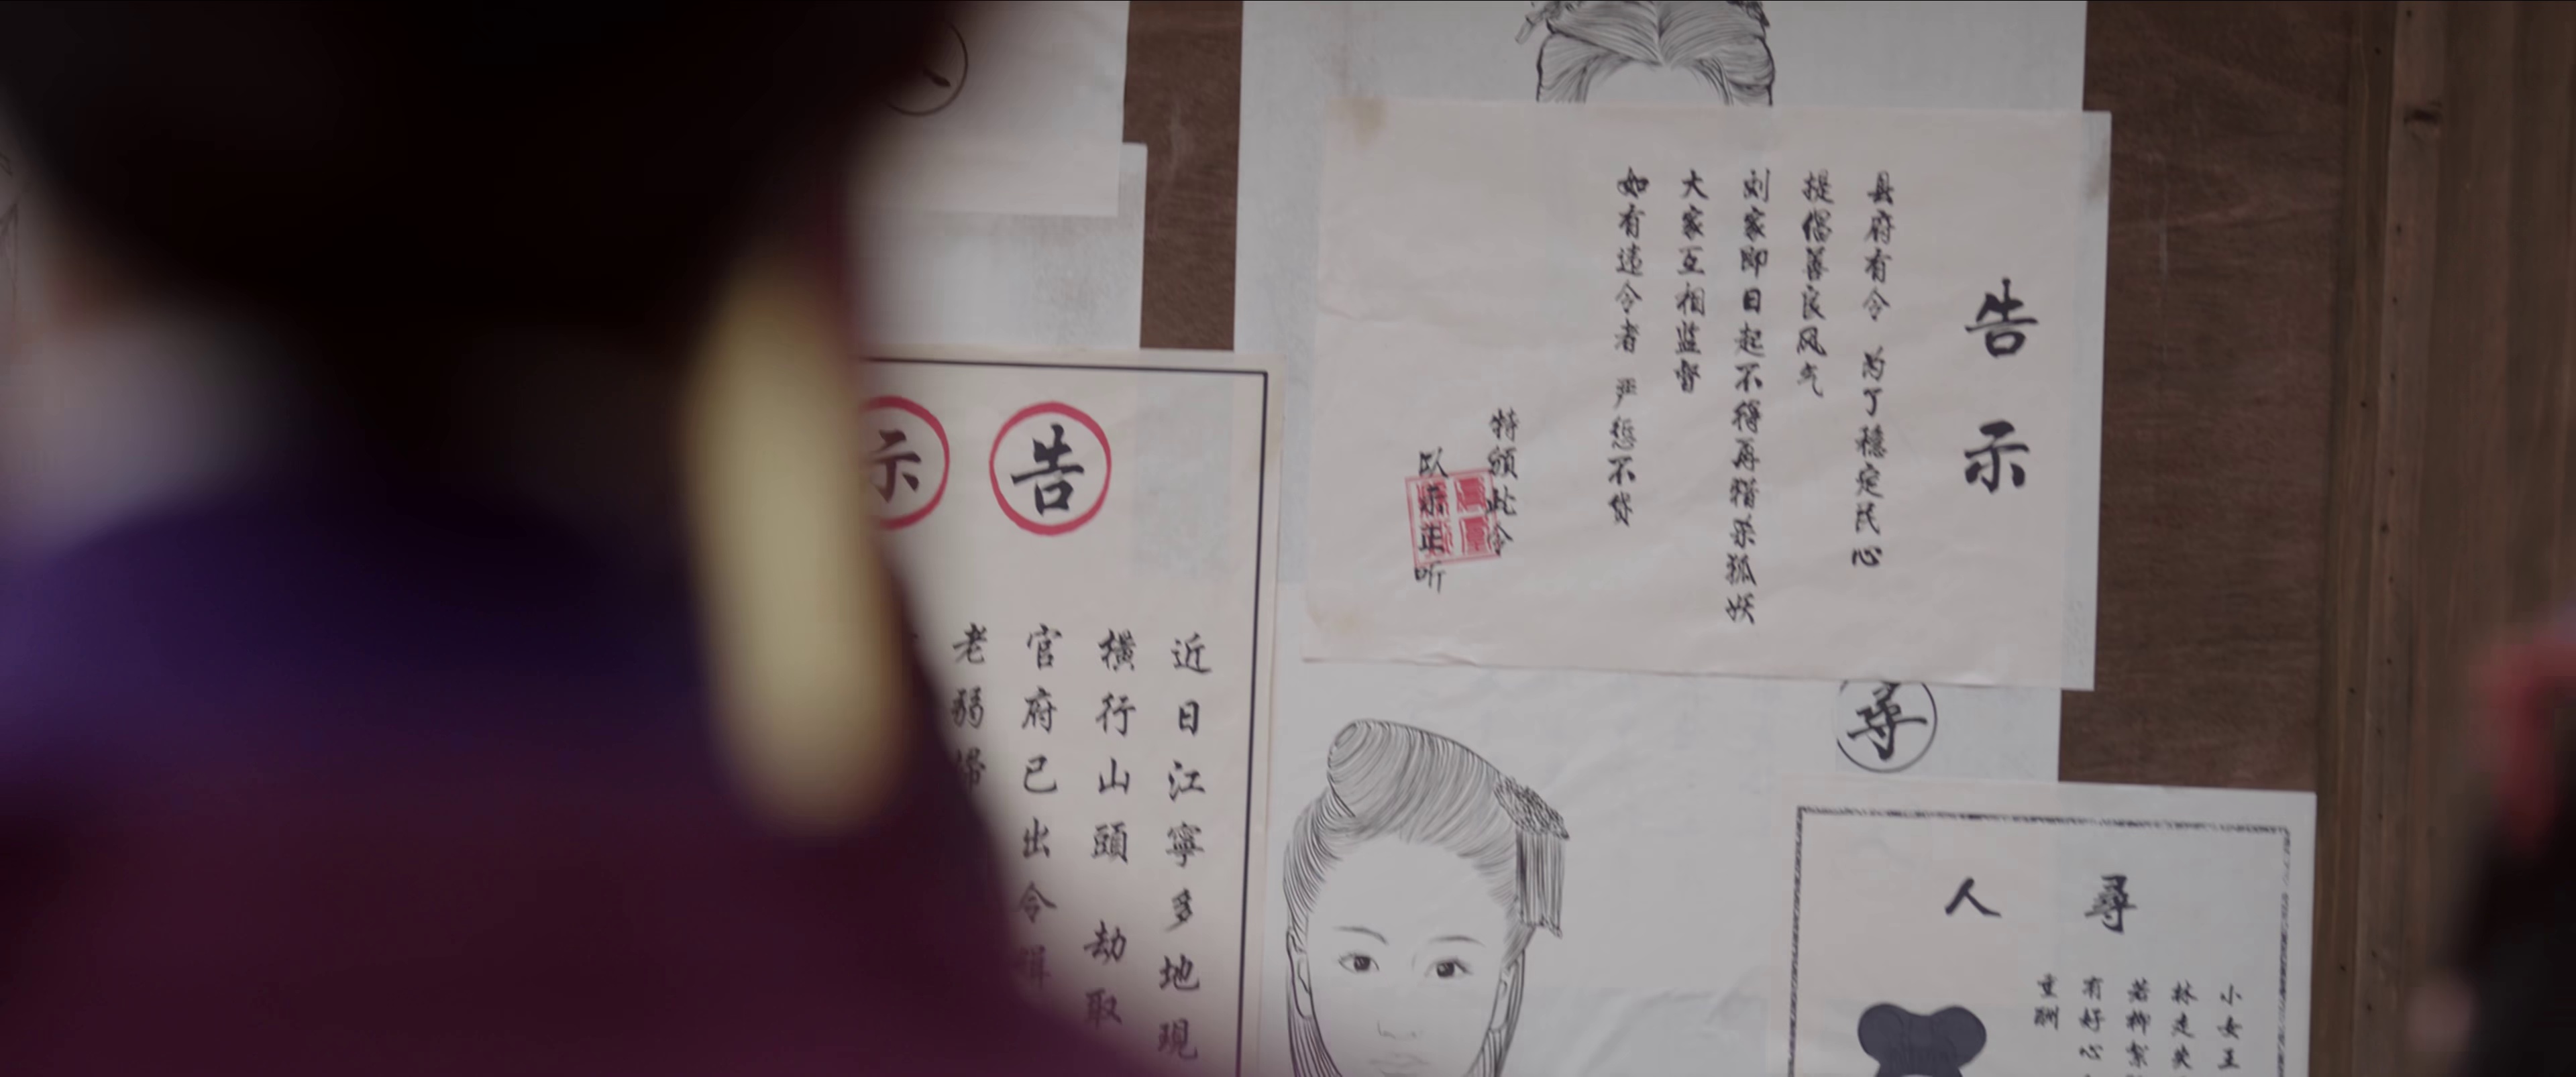 告示
县府有令 为了穩定民心
提倡善良风气
刘家即日起不得再猎杀狐妖
大家互相监督
如有违令者 严惩不贷
特颁此令
以示正听
告示
近日江寧多地現
橫行山頭 劫取
官府已出令緝
老弱婦
尋
尋人
小女王
林走失
若柳絮
有好心
重酬